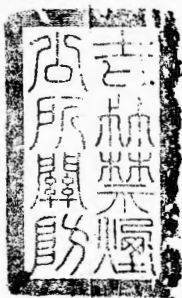 吉林禁煙
公所關防